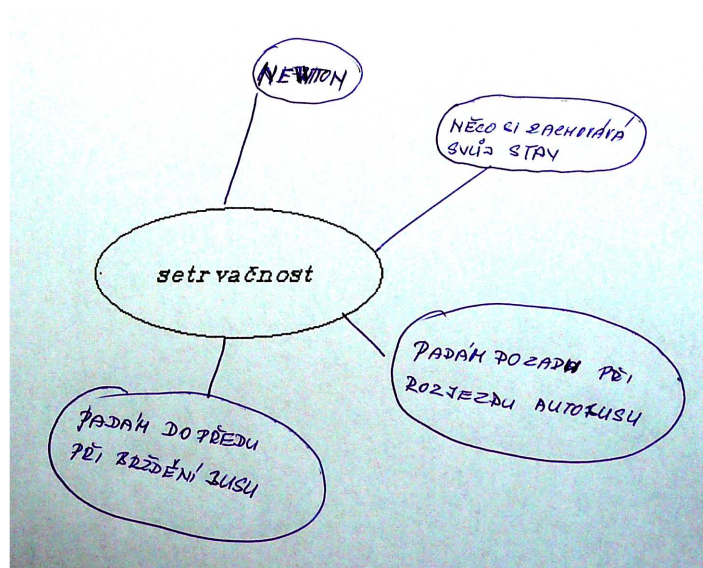 NEWTON
NĚCO SI ZACHOVÁVÁ
SVŮJ STAV
setrvačnost
PADÁM DOZADU PŘI
ROZJEZDU AUTOBUSU
PADÁM DOPŘEDU
PŘI BRŽDĚNÍ BUSU